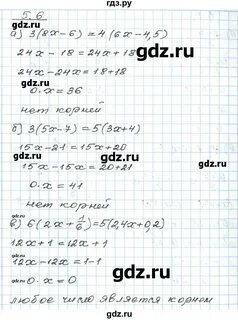 гдз.ру
5.6
а) 3(8x-6)=4(6x-4,5)
24x-18=24x+18
24x-24x=18+18
0·x=36
нет корней
б) 3(5x-7)=5(3x+4)
15x-21=15x+20
15x-15x=20+21
0·x=41
нет корней
в) 6(2x+1/6)=5(2,4x+0,2)
12x+1=12x+1
12x-12x=1-1
0·x=0
любое число является корнем
gdz.ru
gdz.ru
gdz.ru
gdz.ru
gdz.ru
gdz.ru
gdz.ru
gdz.ru